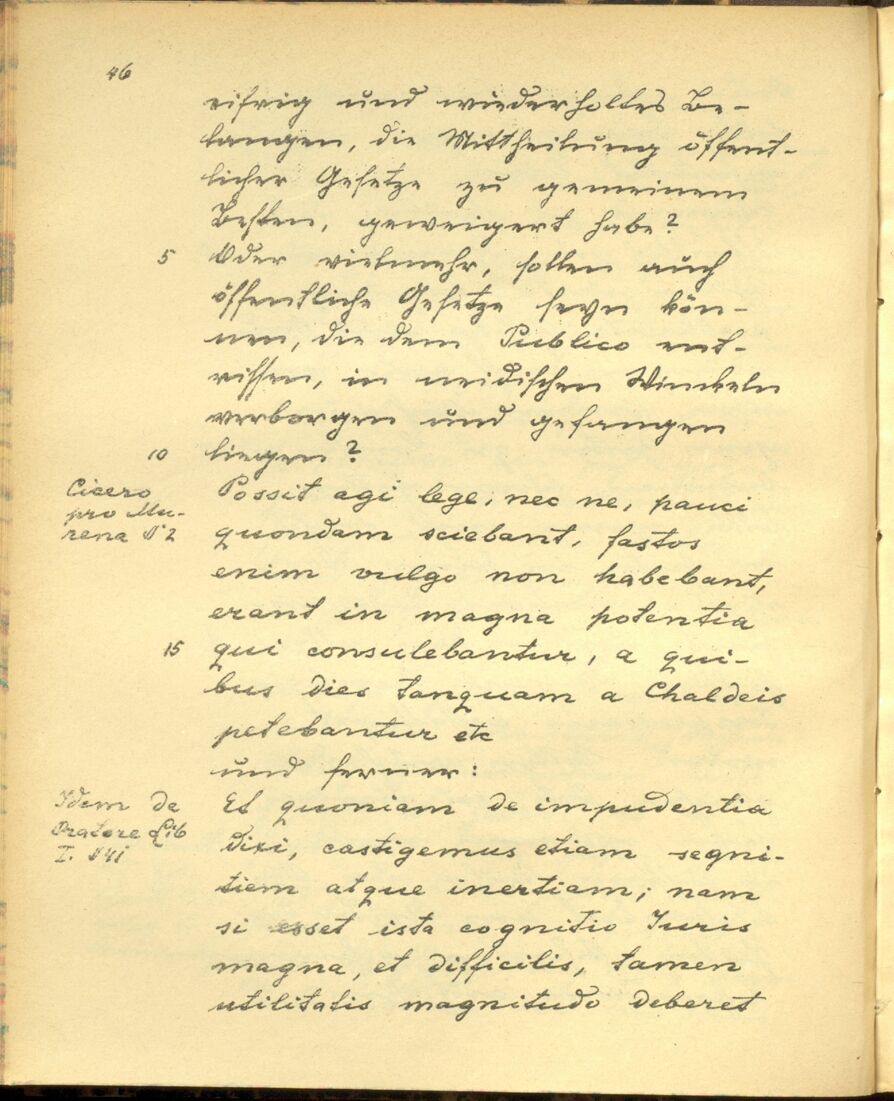 46
eifrig und wiederholtes Be-
langen, die Mittheilung öffent-
licher Gesetze zu gemeinem
Besten, geweigert habe?
5 Oder vielmehr, sollen auch
öffentliche Gesetze seyn kön-
nen, die dem Publico ent-
rissen, in neidischen Winckeln
verborgen und gefangen
10 liegen?
Cicero
pro Mu-
rena §2
Possit agi lege, nec ne, pauci
quondam sciebant, fastos
enim vulgo non habebant,
erant in magna potentia
15 qui consulebantur, a qui-
bus dies tanquam a Chaldeis
petebantur etc
und ferner:
Idem de
Oratore Lib
I. §41
Et quoniam de impudentia
dixi, castigemus etiam segni-
tiem atque inertiam; nam
si esset ista cognitio Juris
magna, et difficilis, tamen
utilitatis magnitudo deberet